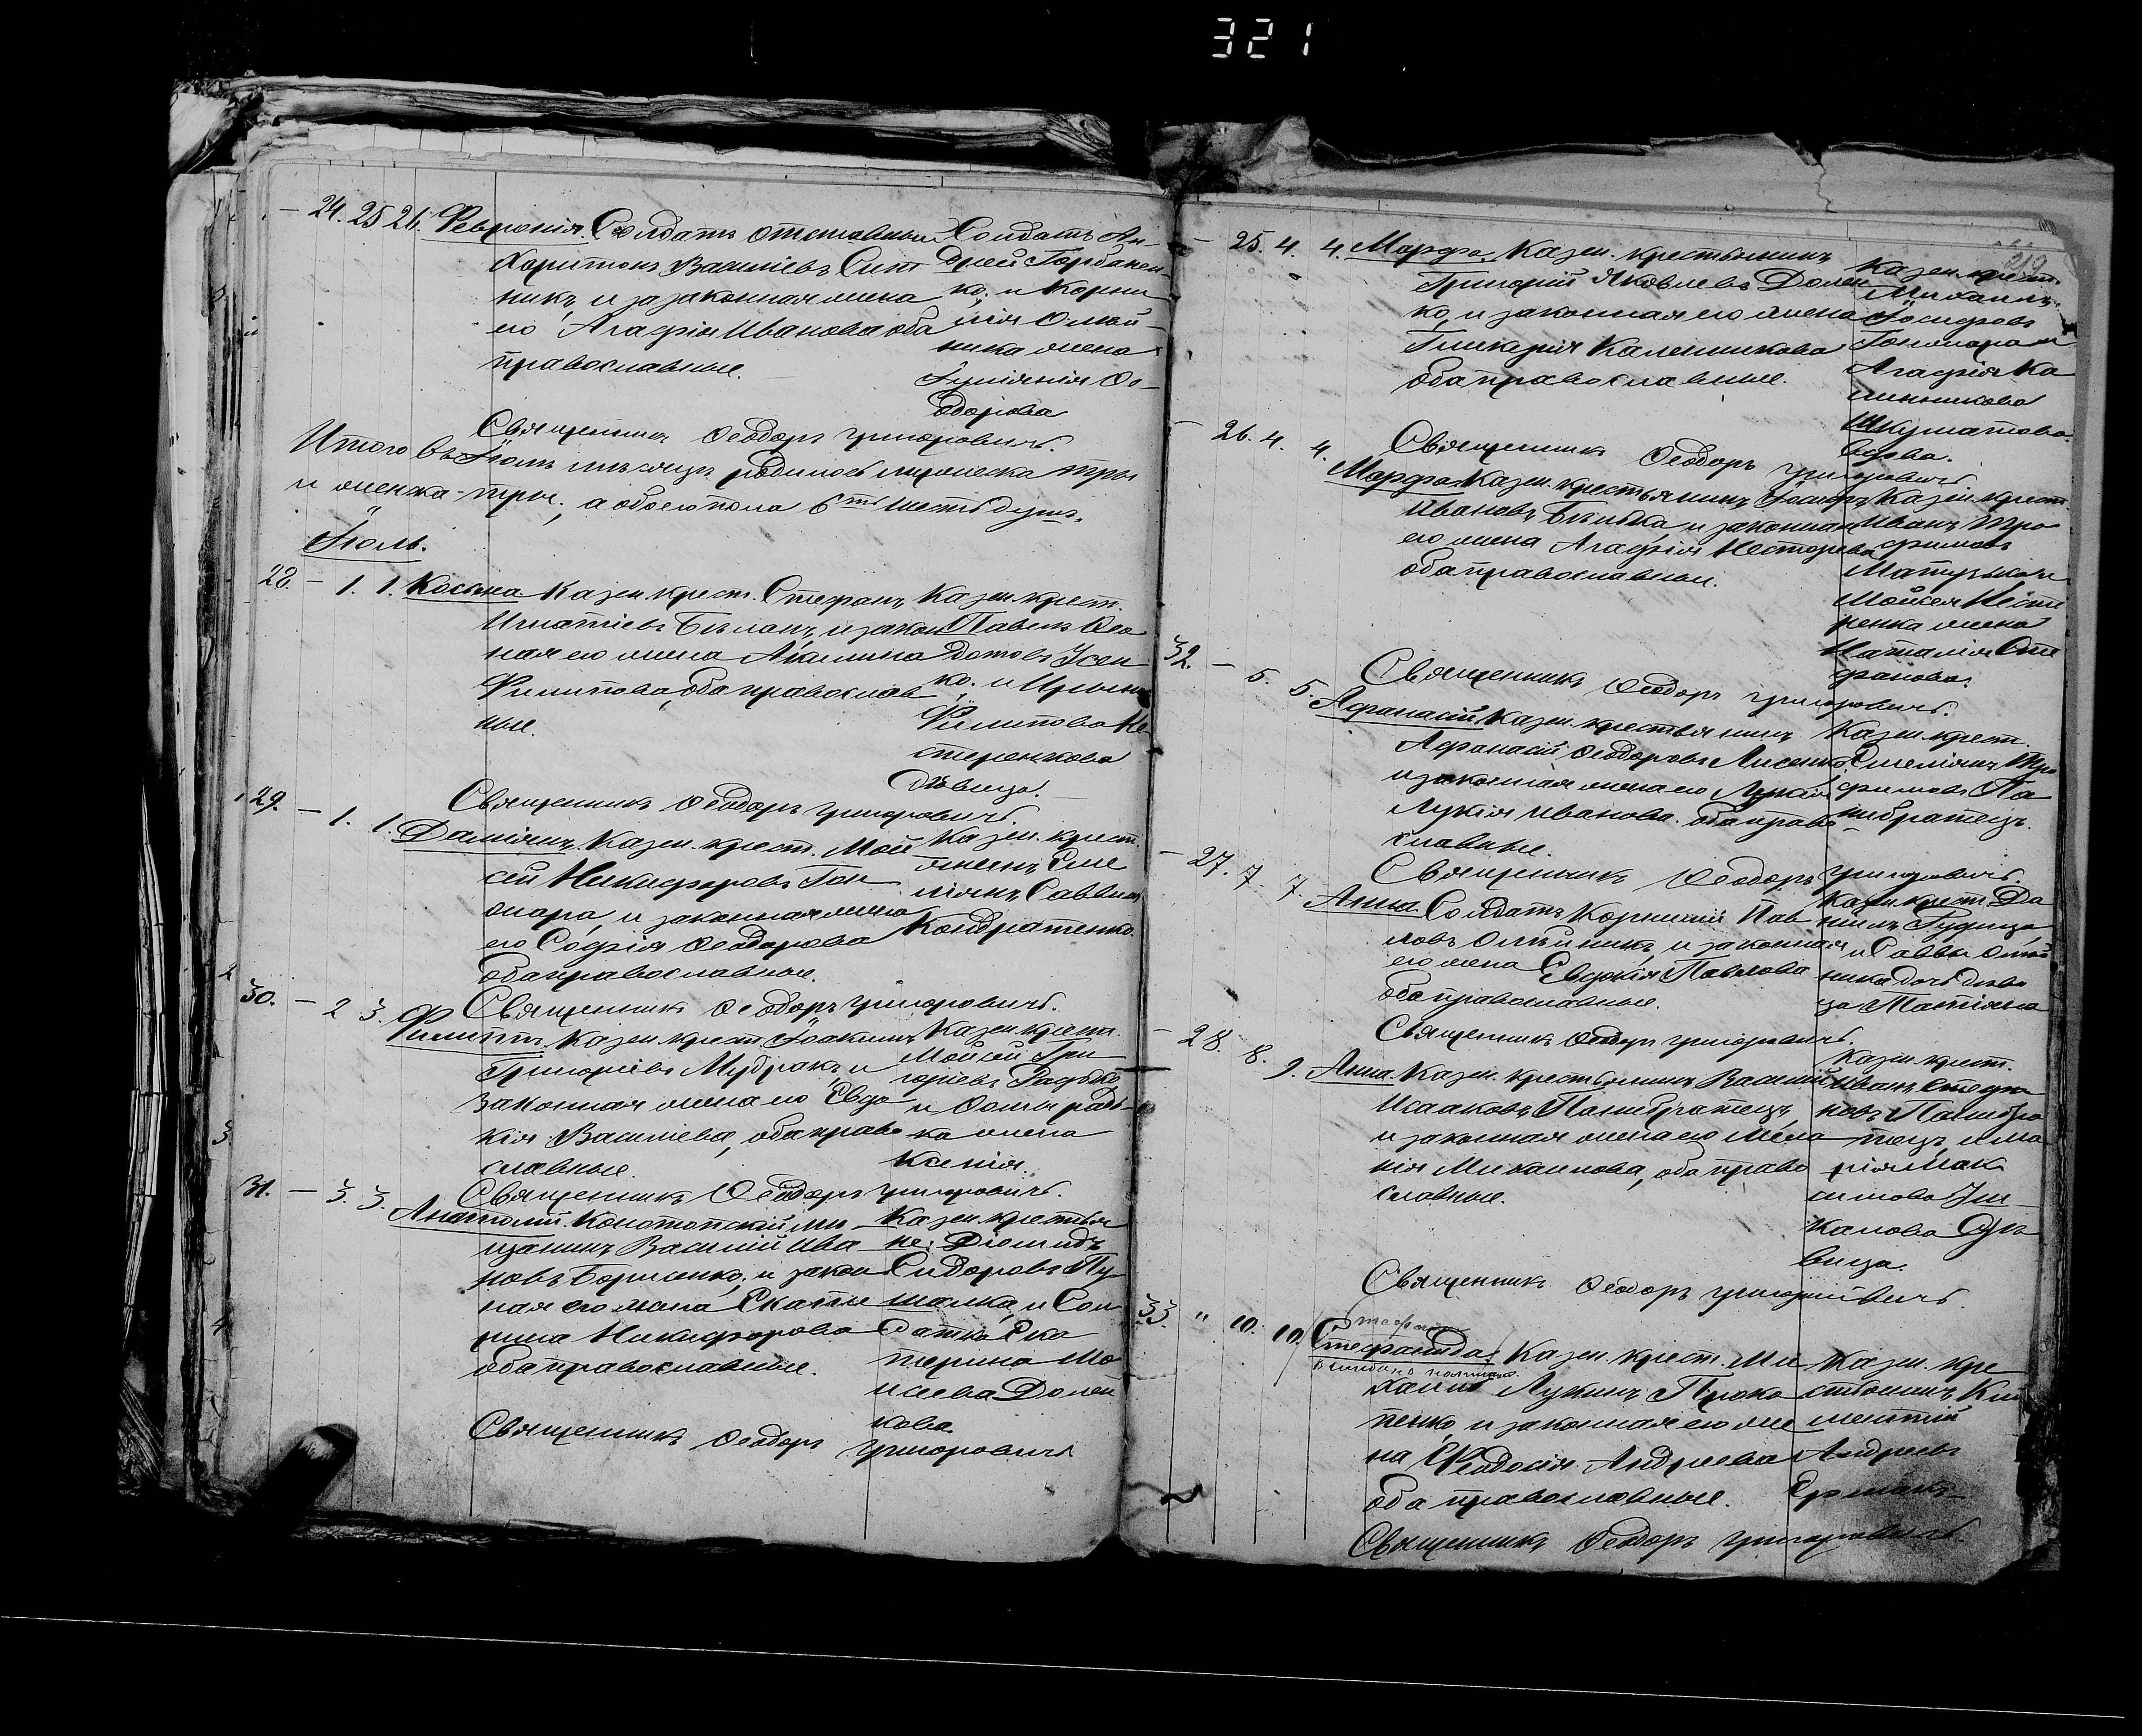 321
— 24. 25 26. Февронія. Солдатъ отставный
Харитонъ Василіевъ Сит
никъ, и законная жена
его Агафія Иванова оба
православные.
Солдатъ Ан-
дрей Горбанен-
ко; и Корни
лія Олей-
ника жена
Іуліянія Ѳе-
одорова
Священникъ Ѳеодоръ Григоровичъ.
Итого въ Іюнѣ мѣсяцѣ родилось мужеска три
и женска-три, а обоего пола 6ть шесть душъ.
Іюль.
28. — 1. 1. Косьма Казен. крест. Стефанъ
Игнатіевъ Бѣланъ, и закон
ная его жена Акилина
Филипова, оба православ
ные.
Казен. крест.
Павелъ Ѳео
дотовъ Усен
ко; и Ирина
Филипова Не
стеренкова
дѣвица.
Священникъ Ѳеодоръ Григоровичъ.
29. — 1. 1. Даміянъ. Казен. крест. Мой
сей Никифоровъ Гон
чара, и законная жена
его Софія Ѳеодорова
оба православные.
Казен. крест
янинъ Еме
ліянъ Саввинъ
Кондратенко.
Священникъ Ѳеодоръ Григоровичъ.
30. — 2 3. Филиппъ. Казен. крест. Іоакимъ
Григоріевъ Мудракъ, и
законная жена его Евдо
кія Василіева, оба право
славные.
Казен. крест.
Мойсей Гри
горіевъ Радько
и Ѳомы радь-
ка жена
Ксенія.
Священникъ Ѳеодоръ Григоровичъ.
31. — 3. 3. Анатолій. Конотопскій мѣ
щанинъ Василій Ива
новъ Борисенко, и закон
ная его жена Екате
рина Никифорова
оба православные.
Казен. крестья
не: Діомидъ
Сидоровъ Пу
шалка, и Сол
датка Ека
терина Мо
исеева Долен
кова
Священникъ Ѳеодоръ Григоровичъ
— 25. 4. 4. Марфа Казен. крестьянинъ
Григорій Яковлевъ Долен
ко, и законная его жена
Гликерія Калениикова
оба православные.
Казен. крест.
Михаилъ
Іосифовъ
Гончара и
Агафія Ка
линникова
Шкуматова
вдова.
Священникъ Ѳеодоръ Григоровичъ
— 26. 4. 4. Марфа Казен. крестьянинъ Іосифъ
Ивановъ Бѣлибка, и законная
его жена Агафія Несторова
оба православные.
Казен. крест.
Иванъ Тро
фимовъ
Матузько и
Мойсея Несте
ренка жена
Наталія Сте
фанова.
Священникъ Ѳеодоръ Григоровичъ.
32. — 5. 5. Афанасій. Казен. крестьянинъ
Афанасій Ѳеодоровъ Лисенко
и законная жена его Лукія
Лукія Иванова. оба право
славные.
Казен. крест.
Емеліянъ Тро
фимовъ Па
нибратецъ.
Священникъ Ѳеодоръ Григоровичъ.
— 27. 7. 7. Анна Солдатъ Корнилій Пав
ловъ Олѣйникъ, и законная
его жена Евдокія Павлова
оба православные.
Казен. крест. Да
ніилъ Гудица,
и Саввы Олей
ника дочь дѣви
ца Татіяна
Священникъ Ѳеодоръ Григоровичъ.
— 28. 8. 9. Анна. Казен. крестьянинъ Василій
Исааковъ Панибратецъ,
и законная жена его Мела
нія Михаилова, оба право
славные.
Казен. крест.
Иванъ Стефа
новъ Панибра
тецъ, и Ма
рія Мак
симова
Камова Дѣ
вица.
Священникъ Ѳеодоръ Григоровичъ.
33. " 10. 10. Стефанида Казен. крест. Ми
хаилъ Лукинъ Проко
пенко, и законная его же
на Ѳеодосія Андреева
оба православные.
Казен. кре
стьянинъ Кли
ментій
Андреевъ
Ермакъ
Священникъ Ѳеодоръ Григоровичъ